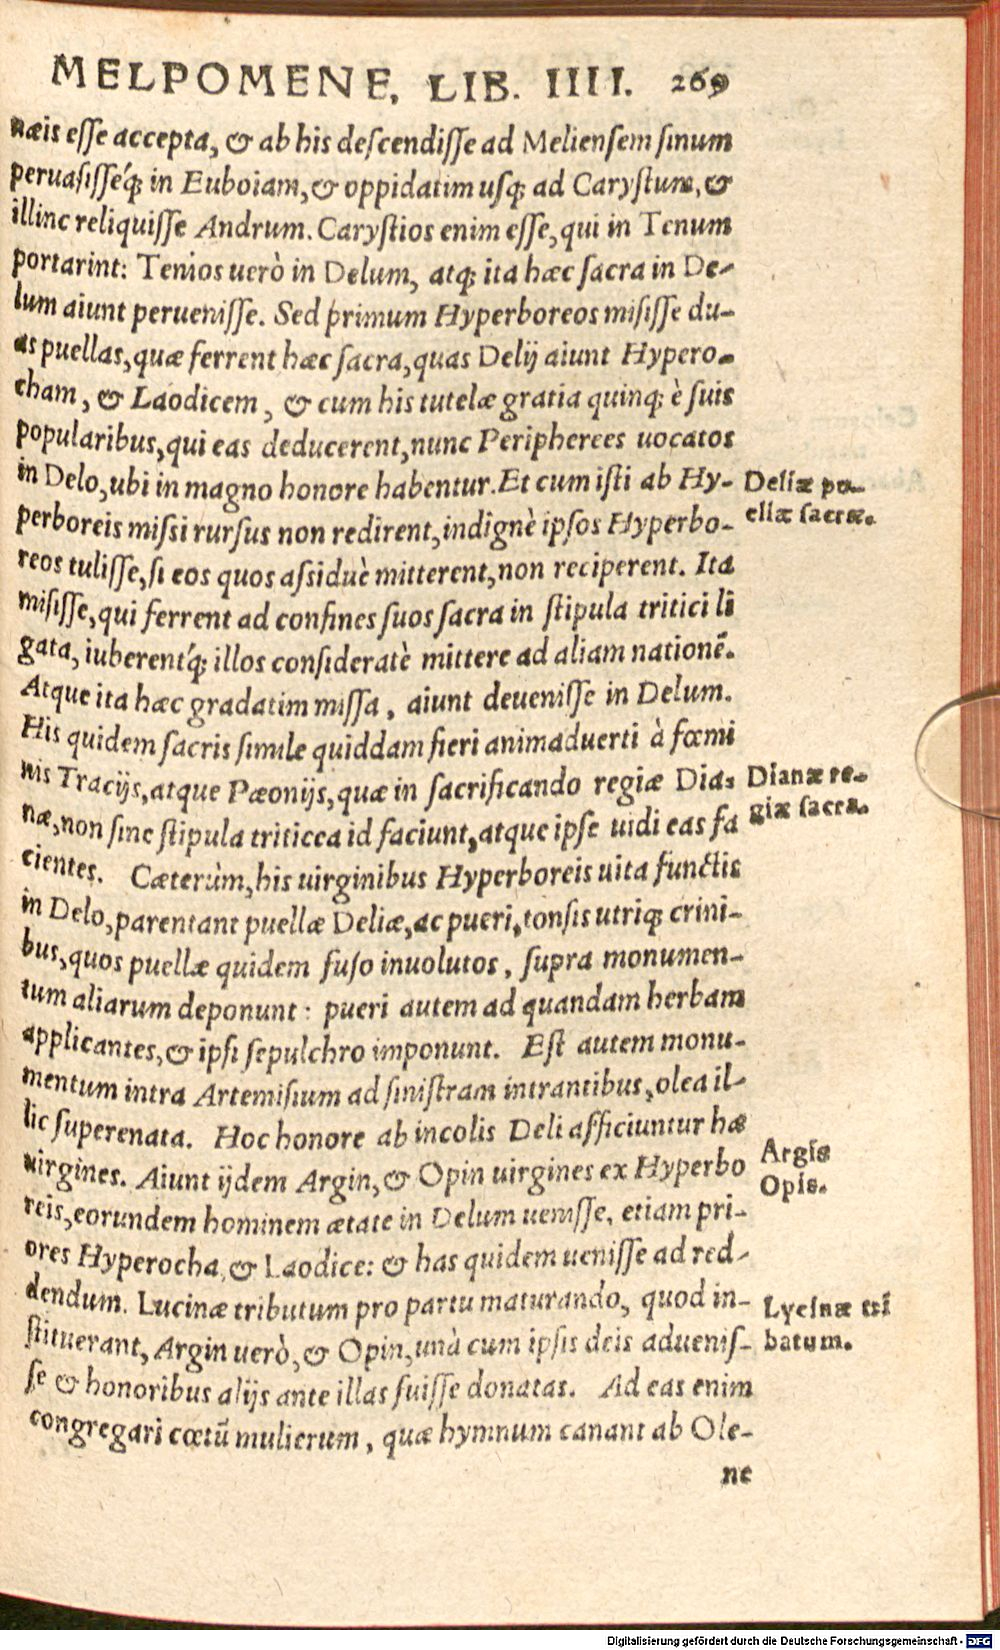 MELPOMENE, LIB. IIII. 269
næis esse accepta, & ab his descendisse ad Meliensem sinum
peruasisséq; in Euboiam, & oppidatim usq; ad Carystum, &
illinc reliquisse Andrum. Carystios enim esse, qui in Tenum
portarint: Tenios uerò in Delum, atq; ita hæc sacra in De-
lum aiunt peruenisse. Sed primum Hyperboreos misisse du-
as puellas, quæ ferrent hæc sacra, quas Delij aiunt Hypero-
cham, & Laodicem, & cum his tutelæ gratia quinq; è suis
popularibus, qui eas deducerent, nunc Peripherees uocatos
in Delo, ubi in magno honore habentur. Et cum isti ab Hy-
perboreis missi rursus non redirent, indignè ipsos Hyperbo-
reos tulisse, si eos quos assiduè mitterent, non reciperent. Ita
misisse, qui ferrent ad confines suos sacra in stipula tritici li
gata, iuberentq́; illos consideratè mittere ad aliam nationē.
Atque ita hæc gradatim missa, aiunt deuenisse in Delum.
His quidem sacris simile quiddam fieri animaduerti à fœmi
nis Tracijs, atque Pæonijs, quæ in sacrificando regiæ Dia-
næ, non sine stipula triticea id faciunt, atque ipse uidi eas fa
cientes. Cæterùm, his uirginibus Hyperboreis uita functis
in Delo, parentant puellæ Deliæ, ac pueri, tonsis utriq; crini-
bus, quos puellæ quidem fuso inuolutos, supra monumen-
tum aliarum deponunt: pueri autem ad quandam herbam
applicantes, & ipsi sepulchro imponunt. Est autem monu-
mentum intra Artemisium ad sinistram intrantibus, olea il-
lic superenata. Hoc honore ab incolis Deli afficiuntur hæ
uirgines. Aiunt ijdem Argin, & Opin uirgines ex Hyperbo
reis, eorundem hominem ætate in Delum uenisse, etiam pri-
ores Hyperocha, & Laodice: & has quidem uenisse ad red-
dendum. Lucinæ tributum pro partu maturando, quod in-
stituerant, Argin uerò, & Opin, unà cum ipsis deis aduenis-
se & honoribus alijs ante illas fuisse donatas. Ad eas enim
congregari cœtū mulierum, quæ hymnum canant ab Ole-
ne
Deliæ pu-
ellæ sacræ.
Dianæ re-
giæ sacra.
Argis
Opis.
Lycinæ tri
butum.
Digitalisierung gefördert durch die Deutsche Forschungsgemeinschaft - DFG